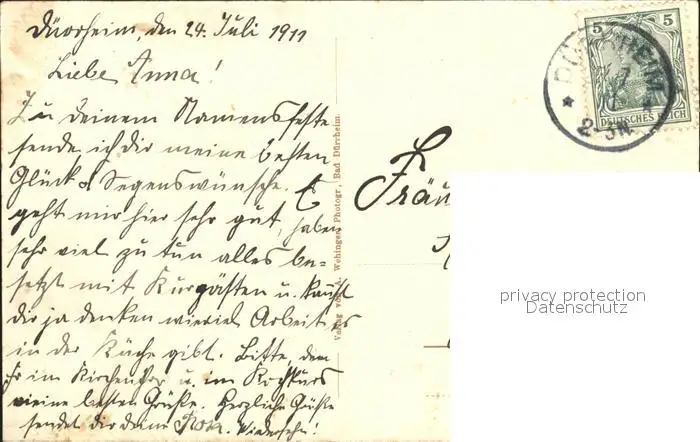 Dürrheim, den 24. Juli 1911
Liebe Anna!
Zu deinem Namensfeste
sende ich dir meine besten
Glück & Segenswünsche. Es
geht mir hier sehr gut, haben
sehr viel zu tun alles be=
setzt mit Kurgästen u. kannst
dir ja denken wieviel Arbeit es
in der Küche gibt. Bitte, dem
im Kirchenchor u. im Kochkurs
meine besten Grüße. Herzliche Grüße
sendet dir deine Rosa. Wiedersehn!
Verlag v. Wehinger, Photogr., Bad Dürrheim.
Fräu
5 5
DEUTSCHES REICH
DÜRRHEIM
2-3N.
privacy protection
Datenschutz